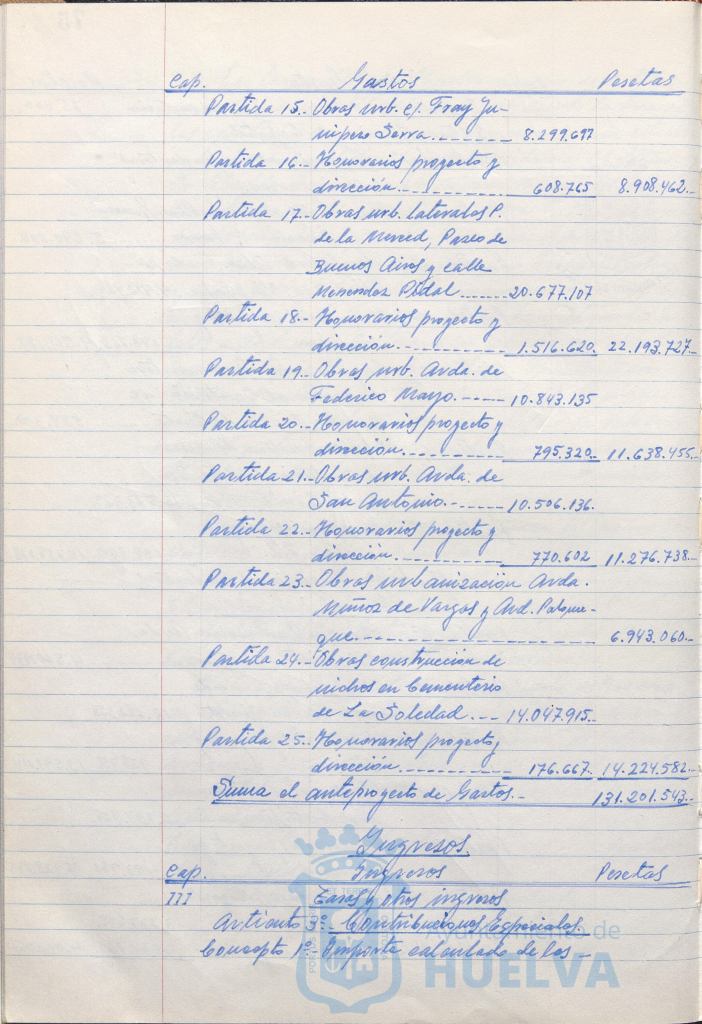 Cap. Gastos Pesetas
Partida 15.- Obras urb. c/. Fray Ju-
nipero Serra.-------- 8.299.697
Partida 16.- Honorarios proyecto y
dirección.---------- 608.765 8.908.462.-
Partida 17.- Obras urb. laterales P.
de la Merced, Paseo de
Buenos Aires y calle
Menendez Pidal.----- 20.677.107
Partida 18.- Honorarios proyecto y
dirección.---------- 1.516.620. 22.193.727.-
Partida 19.- Obras urb. Avda. de
Federico Mayo.---- 10.843.135
Partida 20.- Honorarios proyecto y
dirección.---------- 795.320.- 11.638.455.-
Partida 21.- Obras urb. Avda. de
San Antonio.------ 10.506.136.
Partida 22.- Honorarios proyecto y
dirección.---------- 770.602 11.276.738.-
Partida 23.- Obras urbanización Avda.
Muñoz de Vargas y Avd. Palque-
que.---------------- 6.943.060.-
Partida 24.- Obras construcción de
nichos en Cementerio
de La Soledad.--- 14.047.915.-
Partida 25.- Honorarios proyecto y
dirección.---------- 176.667.- 14.224.582.-
Suma el anteproyecto de Gastos.- 131.201.543.-
Ingresos
Cap. Ingresos Pesetas
III Tasas y otros ingresos
Artículo 3º: Contribuciones Especiales
Concepto 1º.- Importe calculado de los -
de
HUELVA